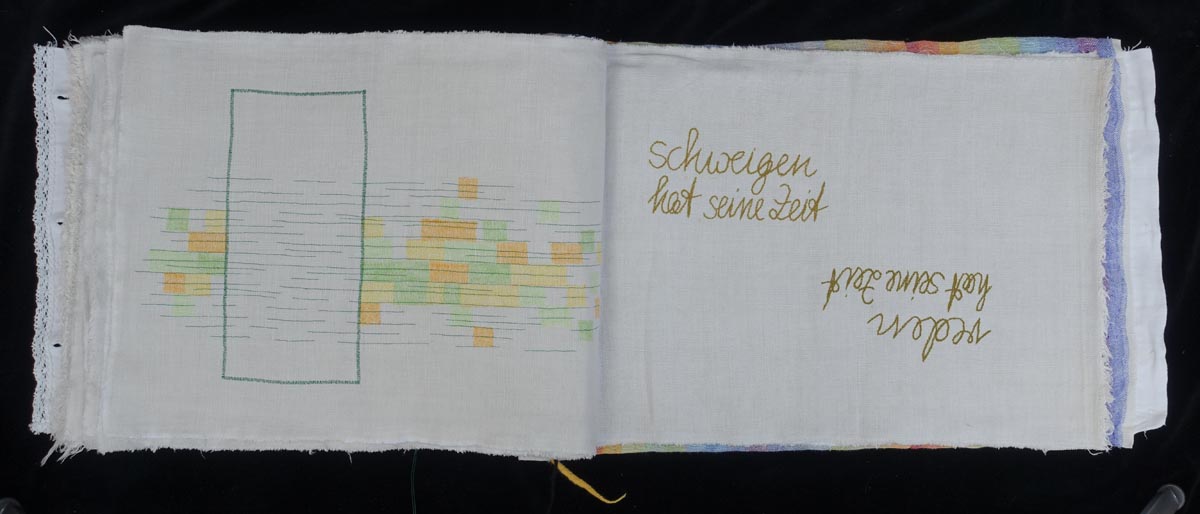 schweigen
hat seine Zeit
reden
hat seine Zeit